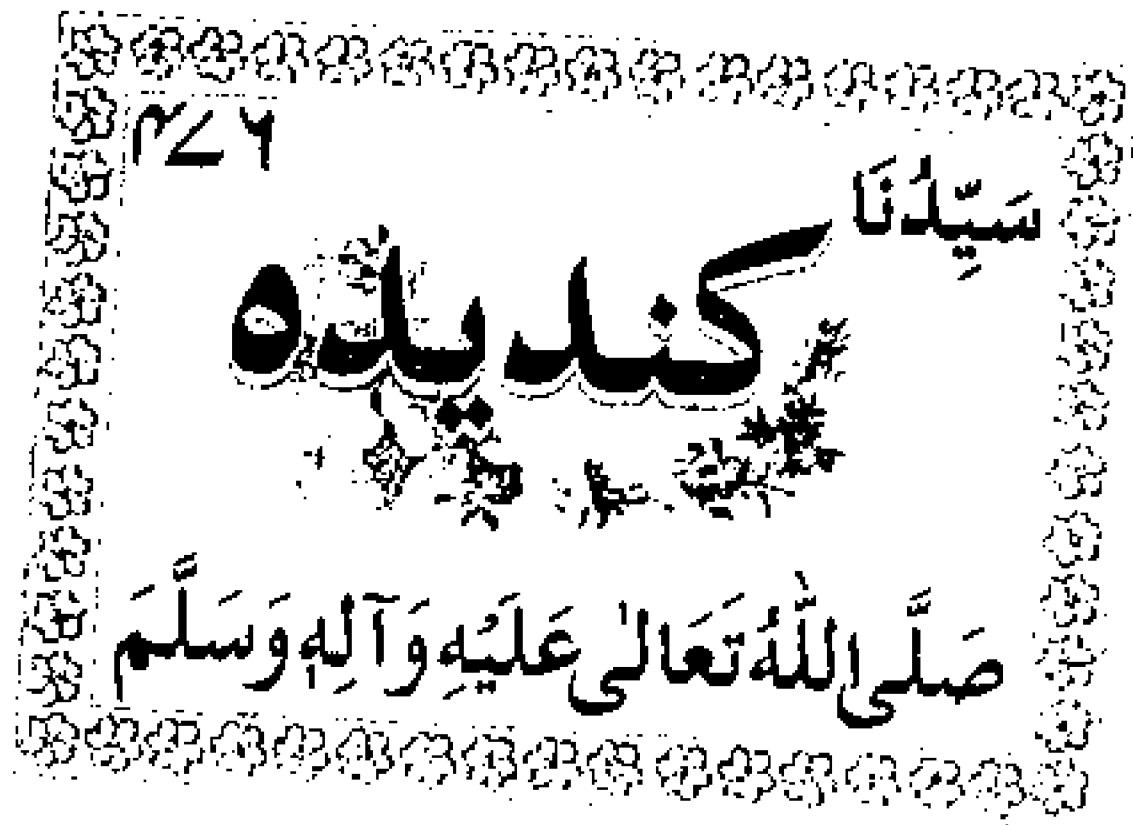 سَيِّدُنَا
كنديده
صَلَّى اللّٰهُ تَعَالٰى عَلَيْهِ وَآلِهٖ وَسَلَّمَ